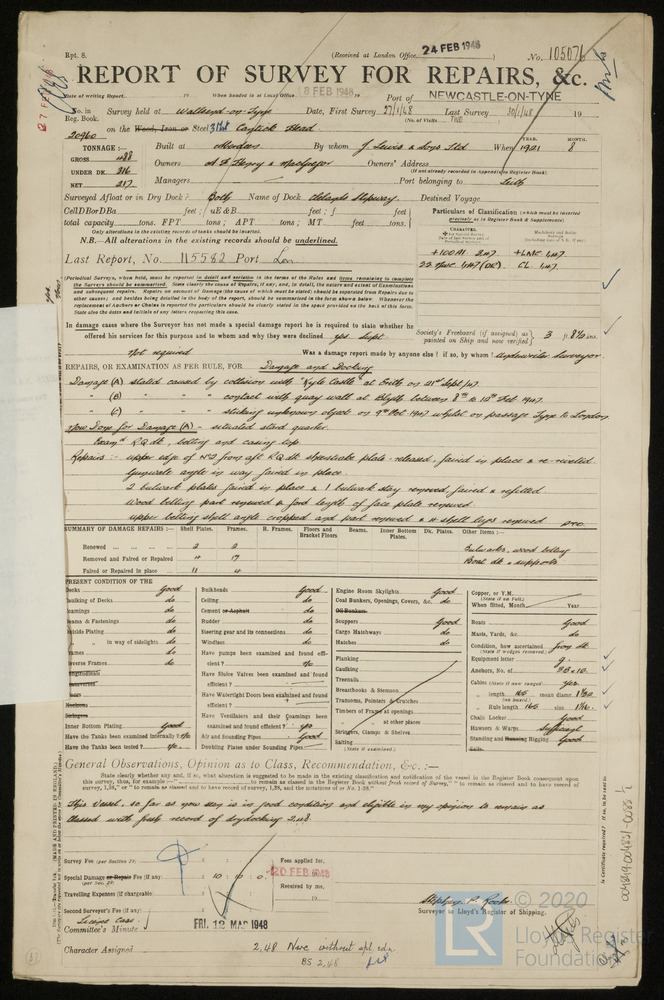 Rpt. 8.
(Received at London Office 24 FEB 1948)
No. 105076
REPORT OF SURVEY FOR REPAIRS, &c.
Date of writing Report 19 When handed in at Local Office 18 FEB 1948 19 Port of NEWCASTLE-ON-TYNE
No. in Reg. Book. Survey held at Wallsend-on-Tyne Date, First Survey 27/1/48 Last Survey 30/1/48 19
(No. of Visits Two)
20960 on the Wood, Iron or Steel Cantick Head
TONNAGE :— Built at Aberdeen By whom J. Lewis & Sons Ltd When YEAR. 1921 MONTH. 8
GROSS 488
UNDER DK. 316
NET 217
Owners A F Henry & MacGregor Owners' Address
(If not already recorded in Appendix to Register Book)
Managers Port belonging to Leith
Surveyed Afloat or in Dry Dock? Both Name of Dock Slipway Destined Voyage
Cell D B or D Ba feet; uE&B feet; f feet
total capacity tons. FPT tons; APT tons; MT feet tons.
Only alterations in the existing records of tanks should be inserted.
N.B.—All alterations in the existing records should be underlined.
Particulars of Classification (which must be inserted precisely as in Register Book & Supplements)
CHARACTER.
Last Report, No. 115582 Port Lon
+100A1 +LMC
(Periodical Surveys, when held, must be reported in detail and seriatim in the terms of the Rules and items remaining to complete the Surveys should be summarised. State clearly the cause of Repairs, if any, and, in detail, the nature and extent of Examinations and subsequent repairs. Repairs on account of Damage (the cause of which must be stated) should be separated from Repairs due to other causes; and besides being detailed in the body of the report, should be summarised in the form shown below. Whenever the replacement of Anchors or Chains is reported the particulars should be clearly stated in the space provided on the back of this form. State also the dates and initials of any letters respecting this case.
In damage cases where the Surveyor has not made a special damage report he is required to state whether he offered his services for this purpose and to whom and why they were declined yes
Society's Freeboard (if assigned) as painted on Ship and now verified 3 ft 8½ ins.
Not required Was a damage report made by anyone else? if so, by whom? Underwriter Surveyor
REPAIRS, OR EXAMINATION AS PER RULE, FOR Damage and Docking
Damage (A) stated caused by collision with "Kyle Castle" at Erith on 21st Sept/47
" (B) " " " contact with quay wall at Blyth between 8th to 10th Feb 1947
" (C) " " " striking unknown object on 9th Oct 1947 whilst on passage Tyne to London
Now Done for Damage (A) – situated stbd quarter.
Exam'd R.Q. dk, belting and casing top
Repairs :- upper edge of No 2 from aft R.Q. dk sheerstrake plate released, faired in place & re-riveted.
Gunwale angle in way faired in place.
2 bulwark plates faired in place & 1 bulwark stay removed, faired & refitted
Wood belting part renewed & ford length of face plate renewed
upper belting shell angle cropped and part renewed & 4 shell lugs renewed PTO.
SUMMARY OF DAMAGE REPAIRS :— Shell Plates. Frames. R. Frames. Floors and Bracket Floors Beams. Inner Bottom Plates. Dk. Plates. Other Items :—
Renewed 2 2 Bulwarks, wood belting
Removed and Faired or Repaired 4 17 Boat dk & supports
Faired or Repaired in place 11 4
PRESENT CONDITION OF THE
Decks Good
Caulking of Decks do
Coamings do
Beams & Fastenings do
Outside Plating do
" " in way of sidelights do
Frames do
Reverse Frames do
Longitudinals
Transverses
Floors
Keelsons
Stringers
Inner Bottom Plating Good
Have the Tanks been examined internally? No
Have the Tanks been tested? No
Bulkheads Good
Ceiling do
Cement or Asphalt do
Rudder do
Steering gear and its connections do
Windlass do
Have pumps been examined and found efficient? No
Have Sluice Valves been examined and found efficient?
Have Watertight Doors been examined and found efficient?
Have Ventilators and their Coamings been examined and found efficient? Yes
Air and Sounding Pipes Good
Doubling Plates under Sounding Pipes
Engine Room Skylights Good
Coal Bunkers, Openings, Covers, &c. do
Oil Bunkers
Scuppers Good
Cargo Hatchways do
Hatches do
Planking
Caulking
Treenails
Breasthooks & Stemson
Transoms, Pointers & Crutches
Timbers of Frame at openings
" " at other places
Stringers, Clamps & Shelves
Salting
(State if examined.)
Copper, or Y.M.
(State if on Felt.)
When fitted, Month Year
Boats Good
Masts, Yards, &c. do
Condition, how ascertained from dk
(State if wedges removed)
Equipment letter g.
Anchors, No. of 3B & 1S.
Cables (State if now ranged) yes
" length 165 mean diamr.
(on board.)
" Rule length 165 size
Chain Locker Good
Hawsers & Warps Sufficient
Standing and Running Rigging Good
Sails
General Observations, Opinion as to Class, Recommendation, &c. :—
State clearly whether any and, if so, what alteration is suggested to be made in the existing classification and notification of the vessel in the Register Book consequent upon this survey, thus, for example :—
This Vessel, so far as now seen is in good condition and eligible in my opinion to remain as
classed with fresh record of drydocking 2,48
Survey Fee (per Section 29) : : Fees applied for,
Special Damage or Repair Fee (if any) (per Sec. 29) 10 : 10 : 0 20 FEB 1948
Travelling Expenses (if chargeable) Received by me,
Second Surveyor's Fee (if any) 19
Surveyor to Lloyd's Register of Shipping.
Committee's Minute FRI. 12 MAR 1948
Character Assigned 2,48 Now without spl. rdn
BS 2,48
Is Certificate required? If so, to be sent to
004849-004851-0088 ½
© 2020
LR
Lloyd's Register
Foundation